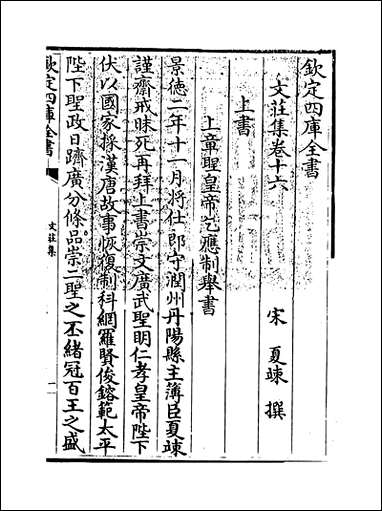 欽定四庫全書
文莊集卷十六
宋 夏竦 撰
上書
上章聖皇帝乞應制舉書
景徳二年十一月將仕郎守潤州丹陽縣主簿臣夏竦
謹齋戒昧死再拜上書崇文廣武聖明仁孝皇帝陛下
伏以國家採漢唐故事恢復制科網羅賢俊鎔範太平
陛下聖政日躋廣分條品崇二聖之丕緒冠百王之盛
欽定四庫全書
文莊集